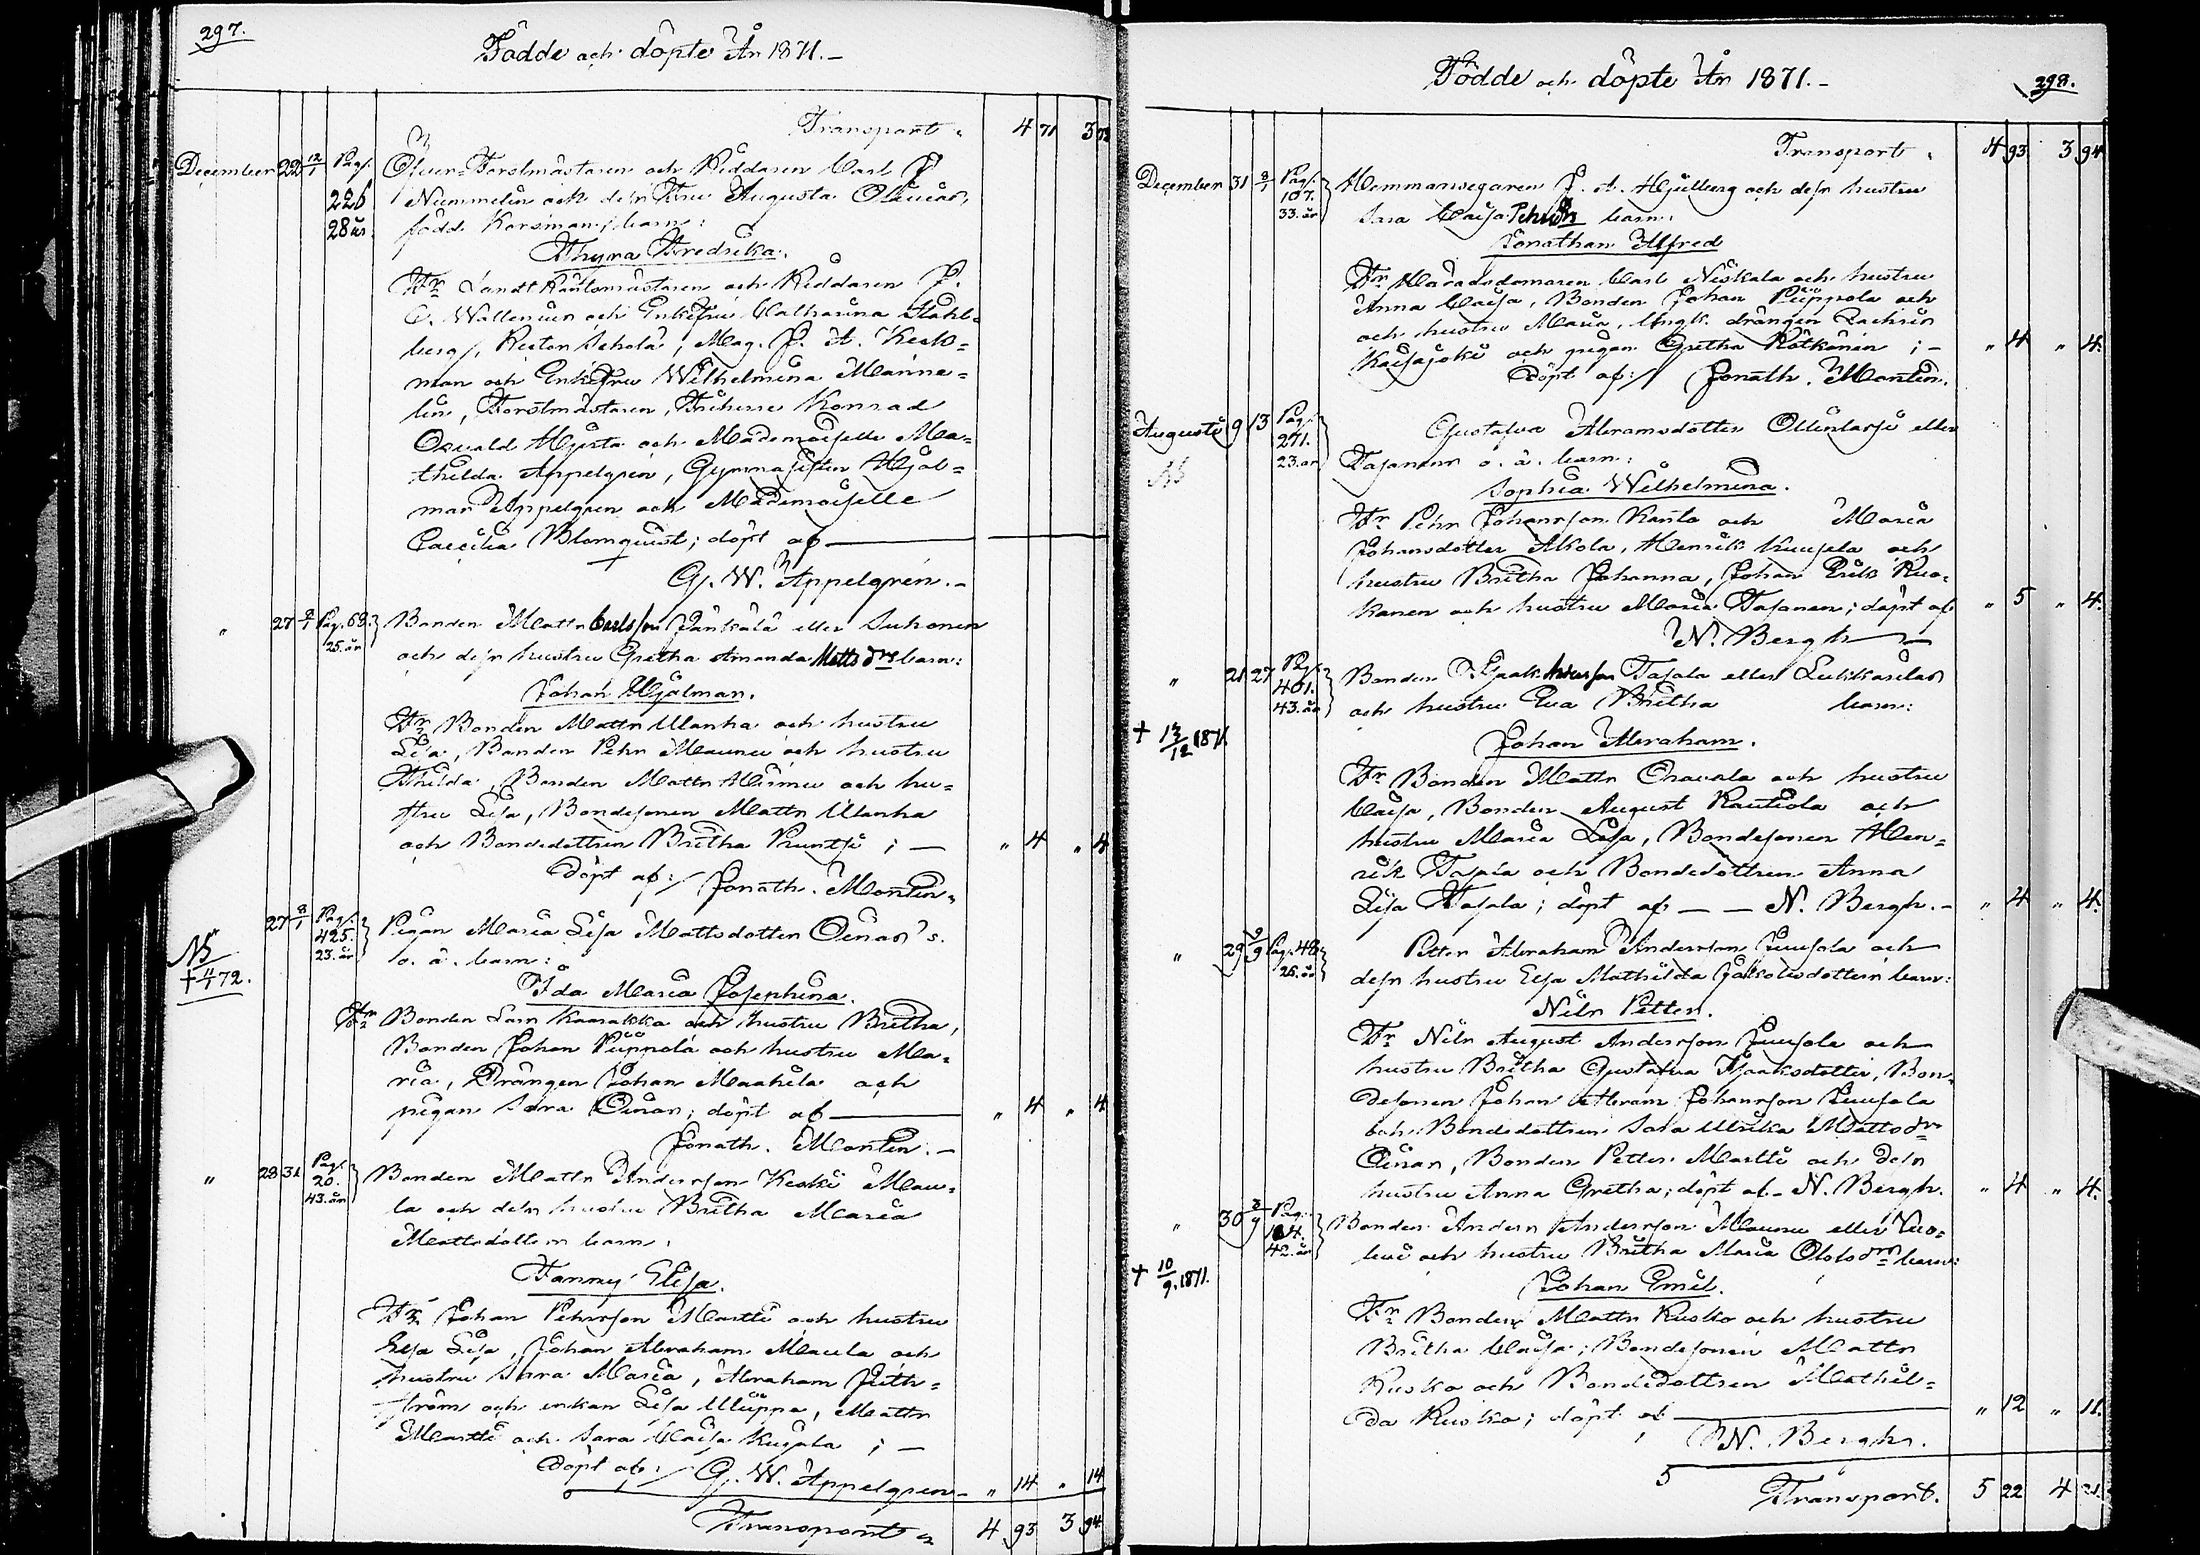 297.
Födde och döpte År 1871.-
Transport " 4 71 3
December 22 12/1 Pag. 226 28 år
Öfver-Forstmästaren och Riddaren Carl J.
Nummelin och dess Fru Augusta
född Korsman, barn:
Thyra Fredrika.
Fr. Landt Räntemästaren och Riddaren J.
C. Wallenius och Enkefru Catharina Stahl-
berg, Rector Scholæ, Mag. J. A. Keck-
man och Enkefru Wilhelmina
Forstmästaren, Friherre Konrad
Osvald och Mademoiselle Ma-
thilda Appelgren, Gymnasisten Hjal-
mar Appelgren och Mademoiselle
Caecilia Blomquist; döpt af
G. W. Appelgren.-
" 27 2/1 Pag. 62. 25. år
Bonden Matts Carlsson Pänkälä eller Suhonen
och dess hustru Gretha Amanda Matts drs barn:
Johan Hjalmar.
Fr. Bonden Matts Ulanha och hustru
Lisa, Bonden Pehr Maunu och hustru
Thilda, Bonden Matts och hu-
stru Lisa, Bondesonen Matts Ulanha
och Bondedottren Britha ; - " 4 " 4
döpt af:/ Jonath. Montin.
27 8/1 Pag. 425. 23. år
Pigan Maria Lisa Mattsdotter Oinas's.
NB
+ 11/1 72.
o. ä. barn:
Ida Maria Josephina.
Fr. Bonden Lars Kaarakka och hustru Britha,
Bonden Johan Piippola och hustru Ma-
ria, Drängen Johan Maahila och
pigan Sara Oinas; döpt af " 4 " 4
Jonath. Montin.-
" 28 31 Pag. 20. 43. år
Bonden Matts Andersson Keski Mau-
la och dess hustru Britha Maria
Mattsdotters barn:
Fanny Elisa.
Fr. Johan Pehrsson Martti och hustru
Elsa Lisa, Johan Abraham Maula och
hustru Anna Maria, Abraham
ström och enkan Lisa Uluppa, Matts
Martti och Sara Caisa Kujala ; -
döpt af:/ G. W. Appelgren- " 14 " 14
Transport 4 93 3 94
Födde och döpte År 1871.- 298.
Transport " 4 93 3 94
December 31 8/1 Pag. 107. 33. år
Hemmansegaren J. A. Hjelberg och dess hustru
Sara Caisa barn:
Jonathan Alfred
Fr. Häradsdomaren Carl Niskala och hustru
Anna Caisa, Bonden Johan Piippola och
och hustru Maria, Ungk. drängen Zachris
Kaisajoki och pigan Gretha Kätkänen ; - " 4 " 4.
Döpt af:/ Jonath. Montin.
Augusti 9 13 Pag. 271. 23. år
NB
Gustafva Abramsdotter eller
Tasanen o. ä. barn:
Sophia Wilhelmina.
Fr. Pehr Johansson Ranta och Maria
Johansdotter Alkola, Henrik Kuusela och
hustru Britha Johanna, Johan Erik Kuo-
kanen och hustru Maria Tasanen; döpt af " 5 " 4.
N. Bergh
" 21 27 Pag. 401. 43. år
Bonden Isaak Tapala eller
och hustru Eva Britha barn:
+ 13/12 1871
Johan Abraham.
Fr. Bonden Matts Oravala och hustru
Caisa, Bonden August Rautiola och
hustru Maria Lisa, Bondesonen Hen-
rik Tapia och Bondedottren Anna
Lisa Tapala; döpt af — — N. Bergh.- " 4 " 4.
" 29 3/9 Pag. 48 25. år
Petter Abraham Andersson Juusola och
dess hustru Elsa Mathilda Jakobsdotters barn:
Nils Petter.
Fr. Nils August Andersson Juusola och
hustru Britha Gustafva Isaaksdotter, Bon-
desonen Johan Abram Johansson Juusola
och Bondedottren Sara Ulrika Matts dr
Oinas, Bonden Petter Martti och dess
hustru Anna Gretha; döpt af- N. Bergh. " 4 " 4.
" 30 3/9 Pag. 104. 42. år
Bonden Anders Andersson Maunu eller Vuo-
+ 10/9. 1871.
och hustru Britha Maria Olofs drs barn:
Johan Emil.
Fr. Bonden Matts Rusko och hustru
Britha Caisa; Bondesonen Matts
Rusko och Bondedottren Mathil-
da Rusko; döpt af " 12 " 11.
N. Bergh.
5
Transport. 5 22 4 21.